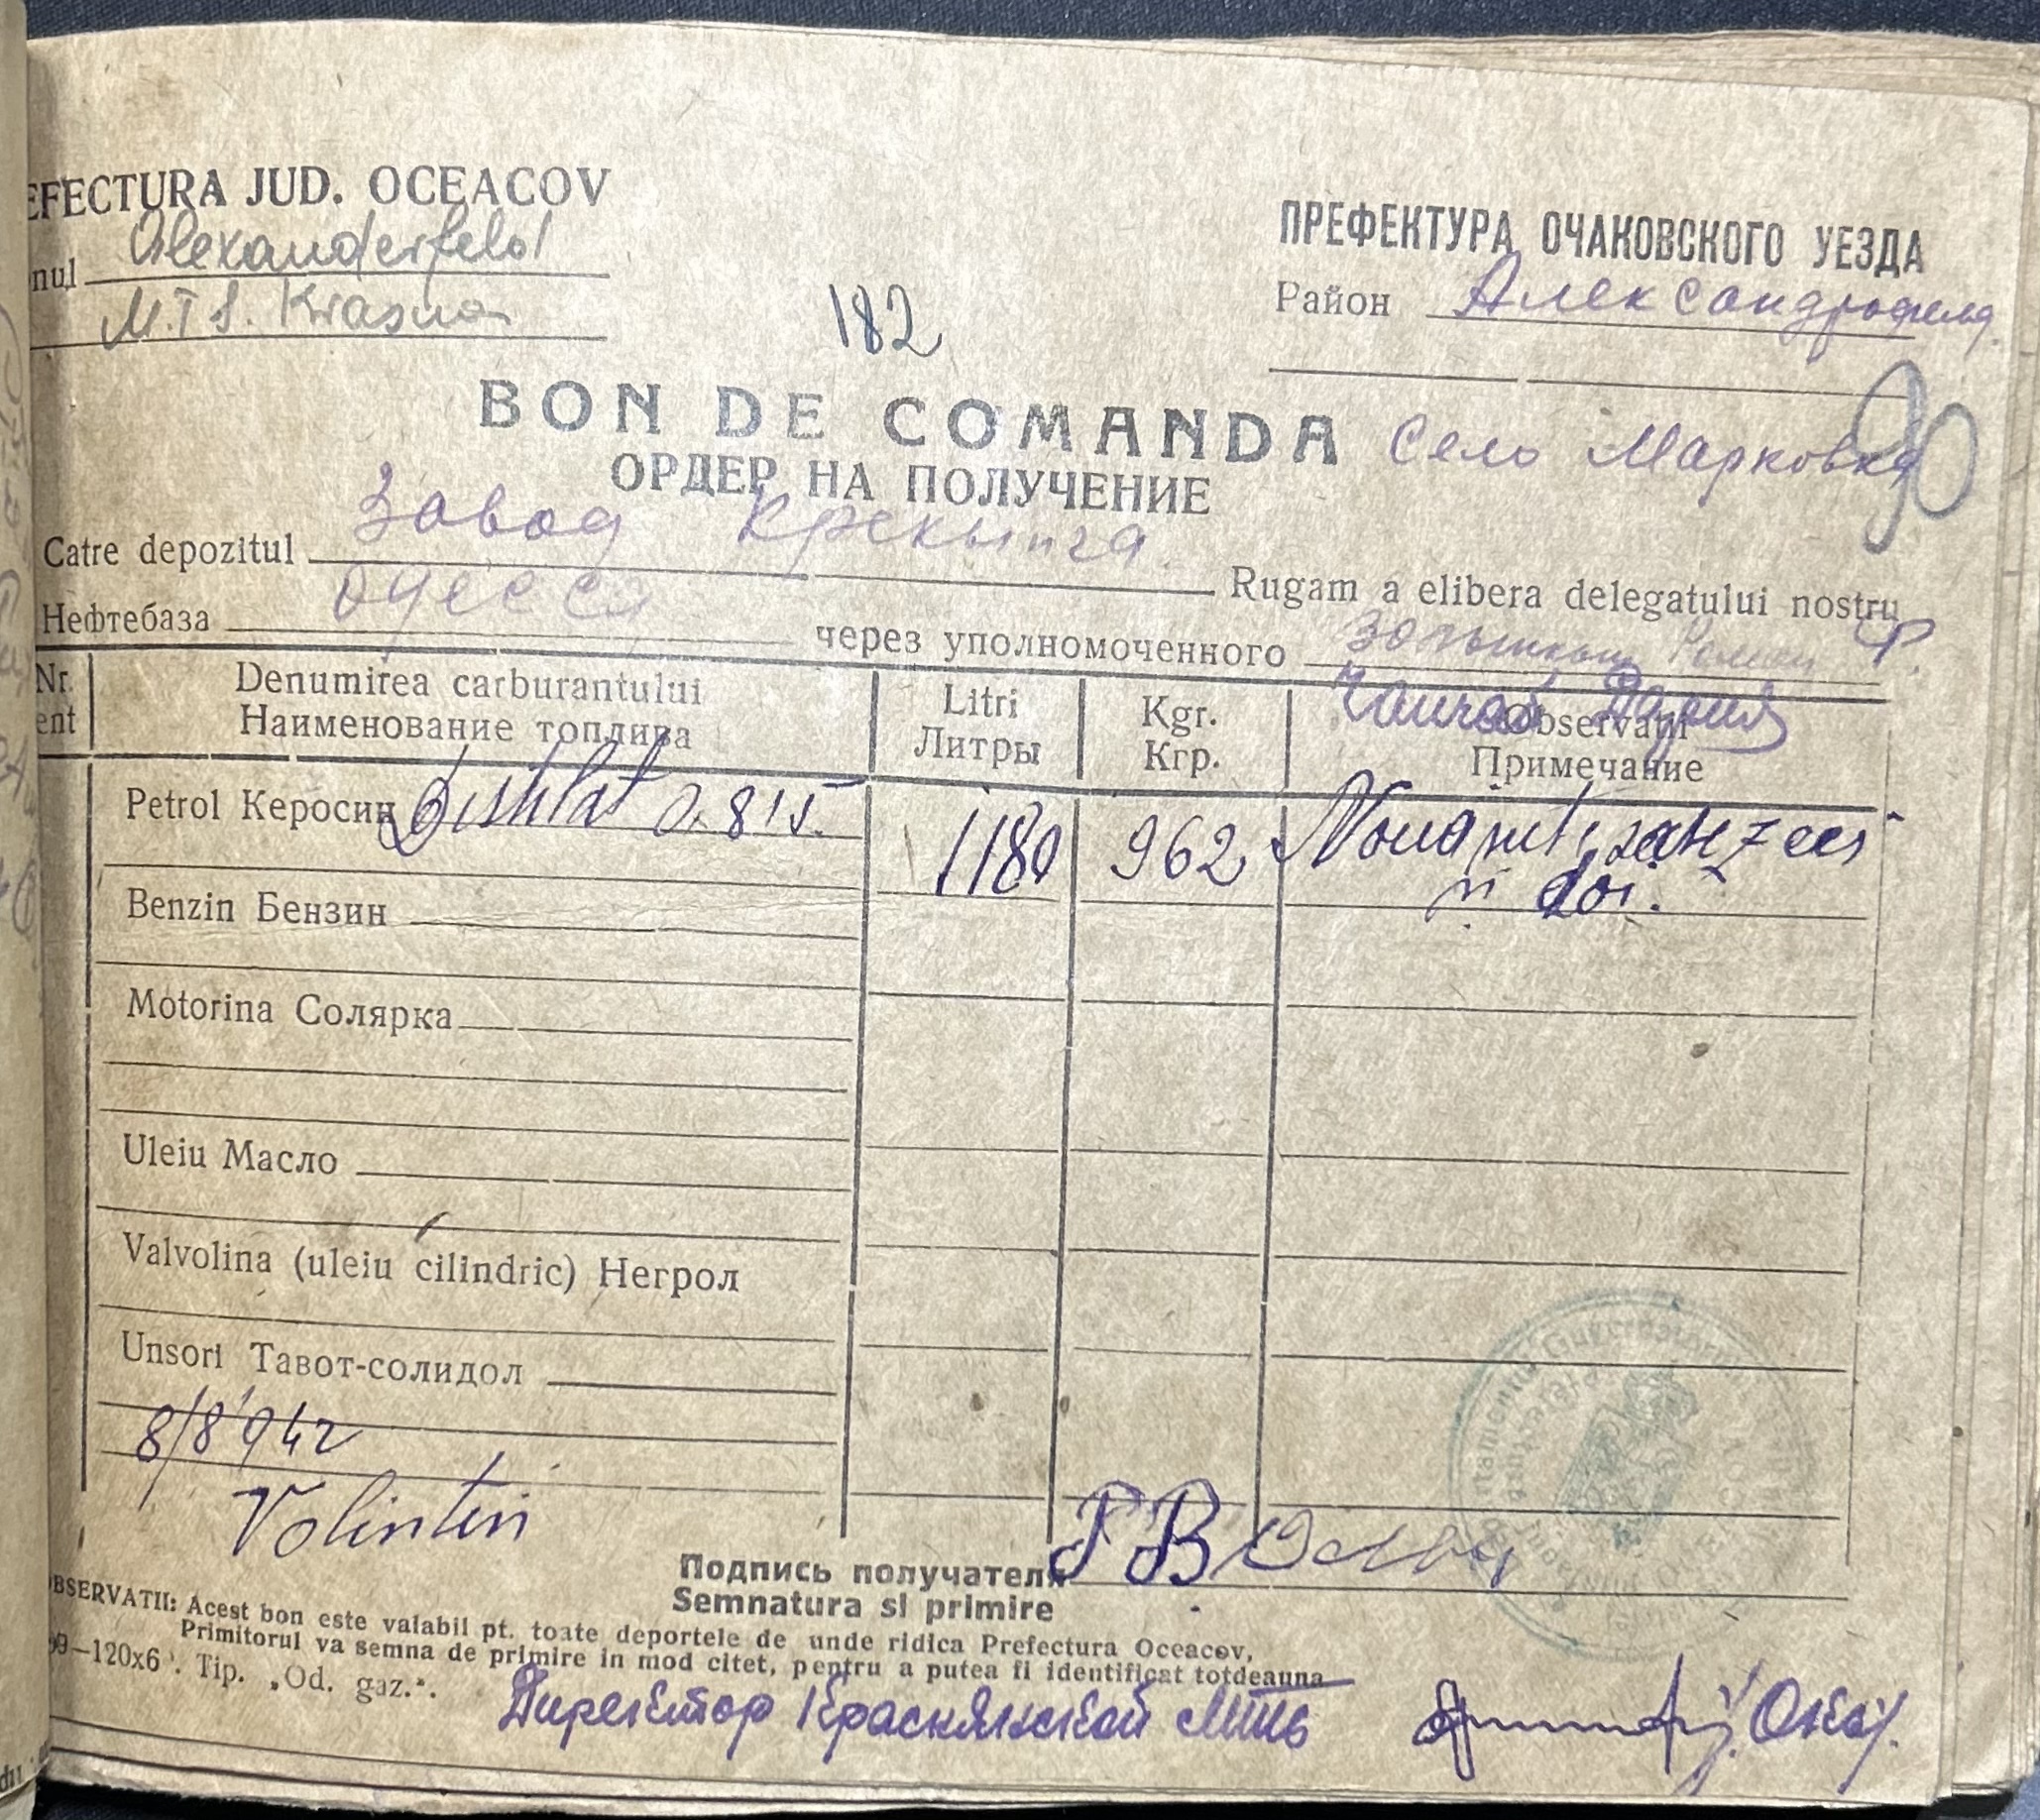 EFECTURA JUD. OCEACOV
nul Alexanderfeld
M.T.S. Krasna
ПРЕФЕКТУРА ОЧАКОВСКОГО УЕЗДА
Район Александрофельд
182
90
BON DE COMANDA
Село Марковка
ОРДЕР НА ПОЛУЧЕНИЕ
Catre depozitul Завод Крекынга Rugam a elibera delegatului nostru
Нефтебаза Одесса через уполномоченного
Nr. Denumirea carburantului Litri Kgr. Observatii
ent Наименование топлива Литры Кгр. Примечание
Petrol Керосин Distilat 0.815. 1180 962 Noua sute sase zeci
si doi.
Benzin Бензин
Motorina Солярка
Uleiu Масло
Valvolina (uleiu cilindric) Негрол
Unsori Тавот-солидол
8/8 942
Volintiri
Подпись получателя
Semnatura si primire
BSERVATII: Acest bon este valabil pt. toate deportele de unde ridica Prefectura Oceacov,
Primitorul va semna de primire in mod citet, pentru a putea fi identificat totdeauna
99—120x6 . Tip. „Od. gaz.".
Директор Краснянской МТС